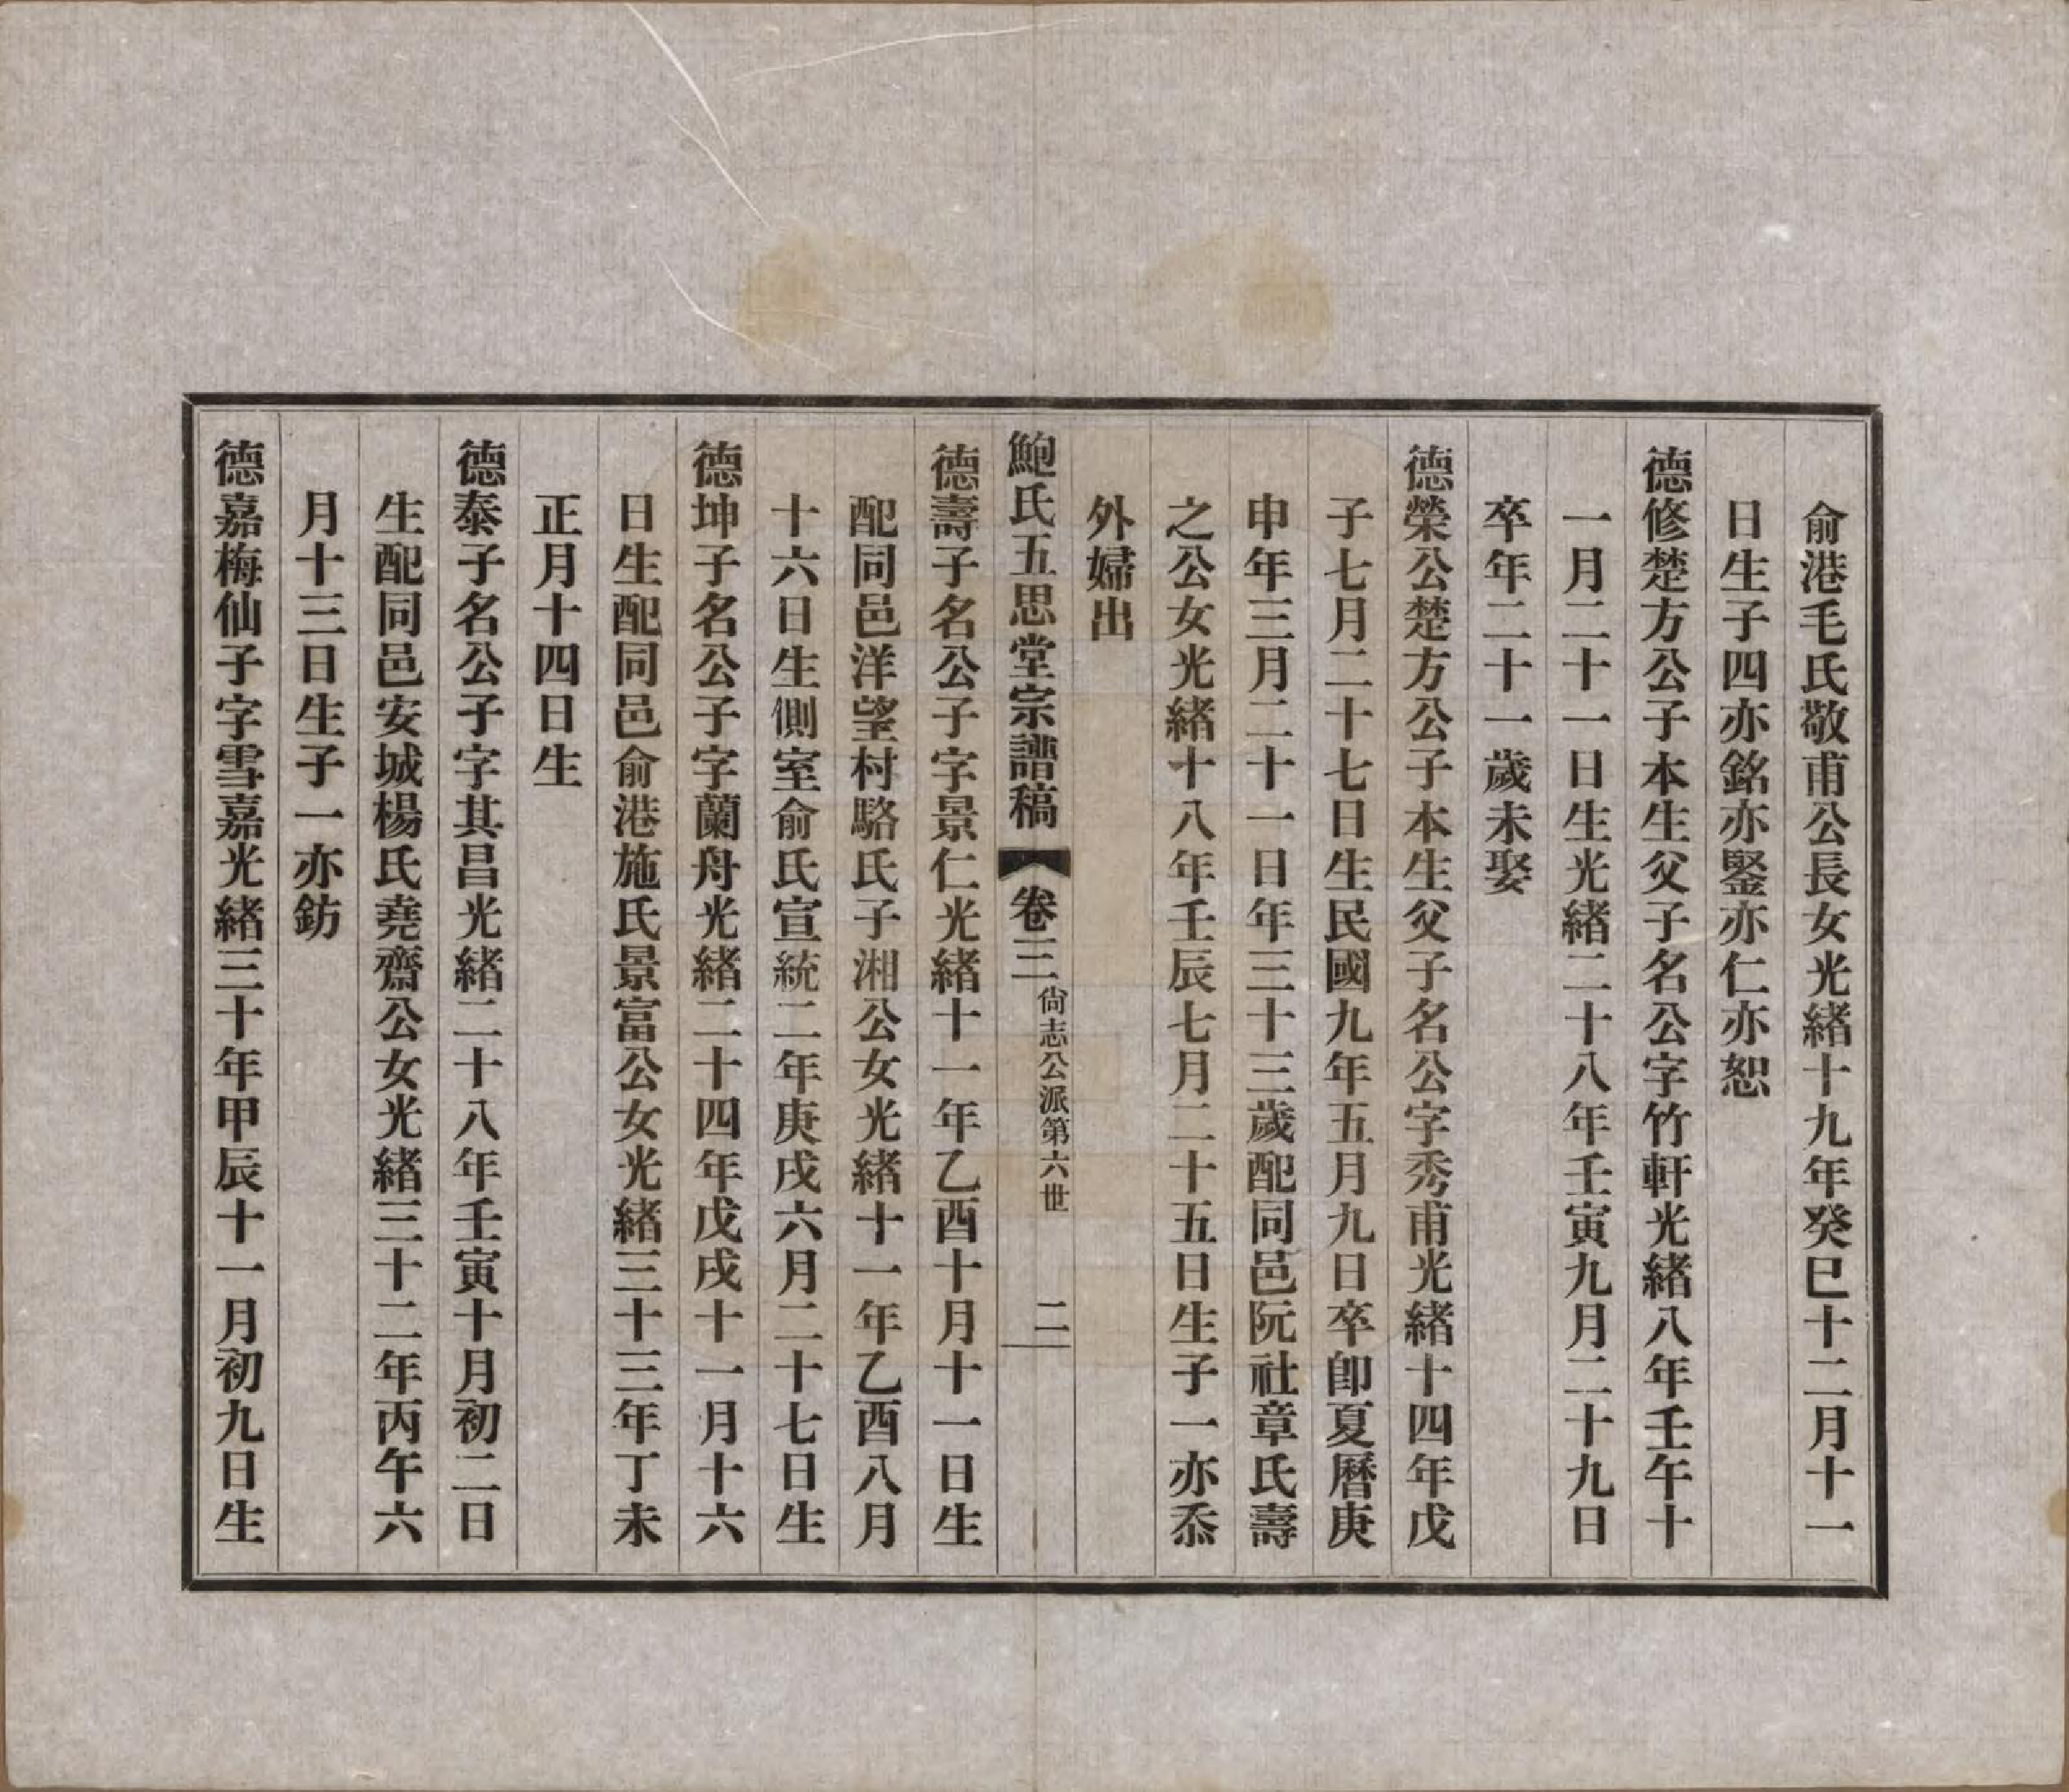 俞港毛氏敬甫公長女光緒十九年癸巳十二月十一
日生子四亦銘亦鋻亦仁亦恕
德修楚方公子本生父子名公字竹軒光緒八年壬午十
一月二十一日生光緒二十八年壬寅九月二十九日
卒年二十一歲未娶
德榮公楚方公子本生父子名公字秀甫光緒十四年戊
子七月二十七日生民國九年五月九日卒卽夏曆庚
申年三月二十一日年三十三歲配同邑阮社章氏壽
之公女光緒十八年壬辰七月二十五日生子一亦忝
外婦出
鮑氏五思堂宗譜稿 卷三 尙志公派第六世 二
德壽子名公子字景仁光緒十一年乙酉十月十一日生
配同邑洋望村駱氏子湘公女光緒十一年乙酉八月
十六日生側室俞氏宣統二年庚戌六月二十七日生
德坤子名公子字蘭舟光緒二十四年戊戌十一月十六
日生配同邑俞港施氏景富公女光緒三十三年丁未
正月十四日生
德泰子名公子字其昌光緒二十八年壬寅十月初二日
生配同邑安城楊氏堯齋公女光緒三十二年丙午六
月十三日生子一亦鈁
德嘉梅仙子字雪嘉光緒三十年甲辰十一月初九日生